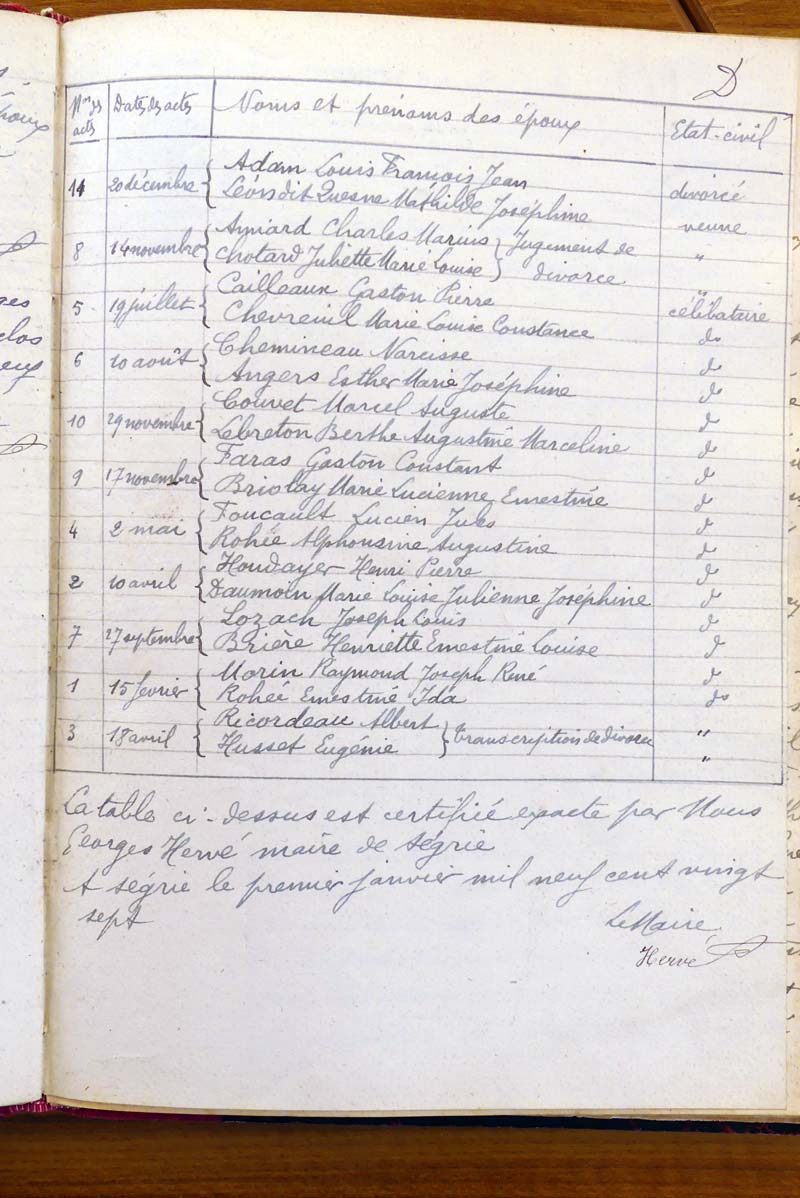 D
Nos des actes Dates des actes Noms et prénoms des époux Etat-civil
11 20 décembre { Adam Louis François Jean divorcé
Léon dit Quesne Mathilde Joséphine veuve
8 14 novembre { Amiard Charles Marius } Jugement de "
Chotard Juliette Marie Louise } divorce "
5 19 juillet { Cailleaux Gaston Pierre célibataire
Chevreuil Marie Louise Constance do
6 10 août { Chemineau Narcisse do
Angers Esther Marie Joséphine do
10 29 novembre { Couvet Marcel Auguste do
Lebreton Berthe Augustine Marceline do
9 17 novembre { Faras Gaston Constant do
Briolay Marie Lucienne Ernestine do
4 2 mai { Foucault Lucien Jules do
Rohée Alphonsine Augustine do
2 10 avril { Houdayer Henri Pierre do
Daumoin Marie Louise Julienne Joséphine do
7 27 septembre { Lozach Joseph Louis do
Brière Henriette Ernestine Louise do
1 15 fevrier { Morin Raymond Joseph René do
Rohée Ernestine Ida do
3 18 avril { Ricordeau Albert } transcription de divorce "
Husset Eugénie "
La table ci-dessus est certifié exacte par Nous
Georges Hervé maire de Ségrie
A ségrie le premier janvier mil neuf cent vingt
sept Le Maire
Hervé